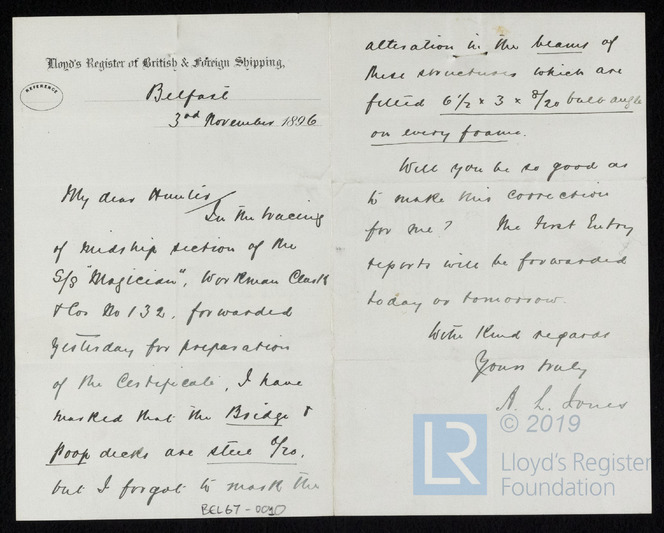 Lloyd's Register of British & Foreign Shipping,
REFERENCE
Belfast
3rd November 1896
My dear Hunter
In the tracing
of midship section of the
S/S "Magician", Workman Clark
& Cos No 132, forwarded
yesterday for preparation
of the Certificate, I have
marked that the Bridge &
Poop decks are steel 6/20,
but I forgot to mark the
BEL67-0090
alteration in the beams of
these structures which are
fitted 6 1/2 x 3 x 8/20 bulb angle
on every frame.
Will you be so good as
to make this correction
for me? The First Entry
reports will be forwarded
today or tomorrow.
With kind regards
Yours truly
A. L. Jones
© 2019
LR
Lloyd's Register
Foundation